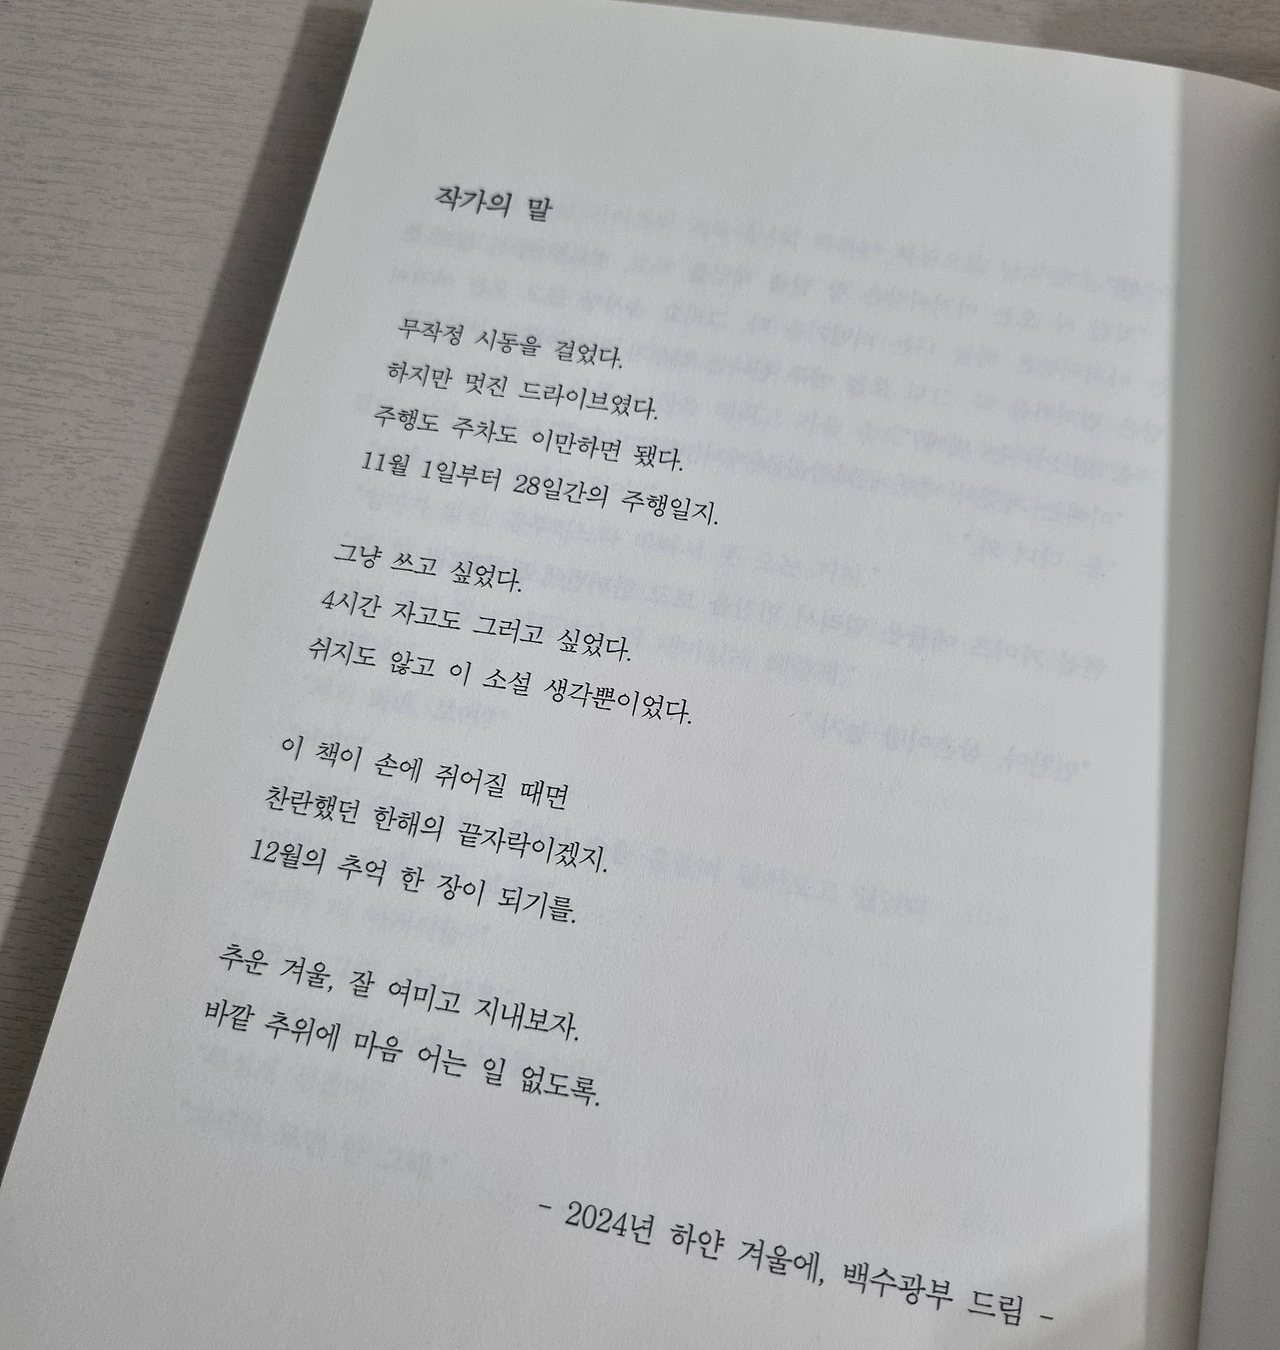 작가의 말
무작정 시동을 걸었다.
하지만 멋진 드라이브였다.
주행도 주차도 이만하면 됐다.
11월 1일부터 28일간의 주행일지.
그냥 쓰고 싶었다.
4시간 자고도 그러고 싶었다.
쉬지도 않고 이 소설 생각뿐이었다.
이 책이 손에 쥐어질 때면
찬란했던 한해의 끝자락이겠지.
12월의 추억 한 장이 되기를.
추운 겨울, 잘 여미고 지내보자.
바깥 추위에 마음 어는 일 없도록.
- 2024년 하얀 겨울에, 백수광부 드림 -